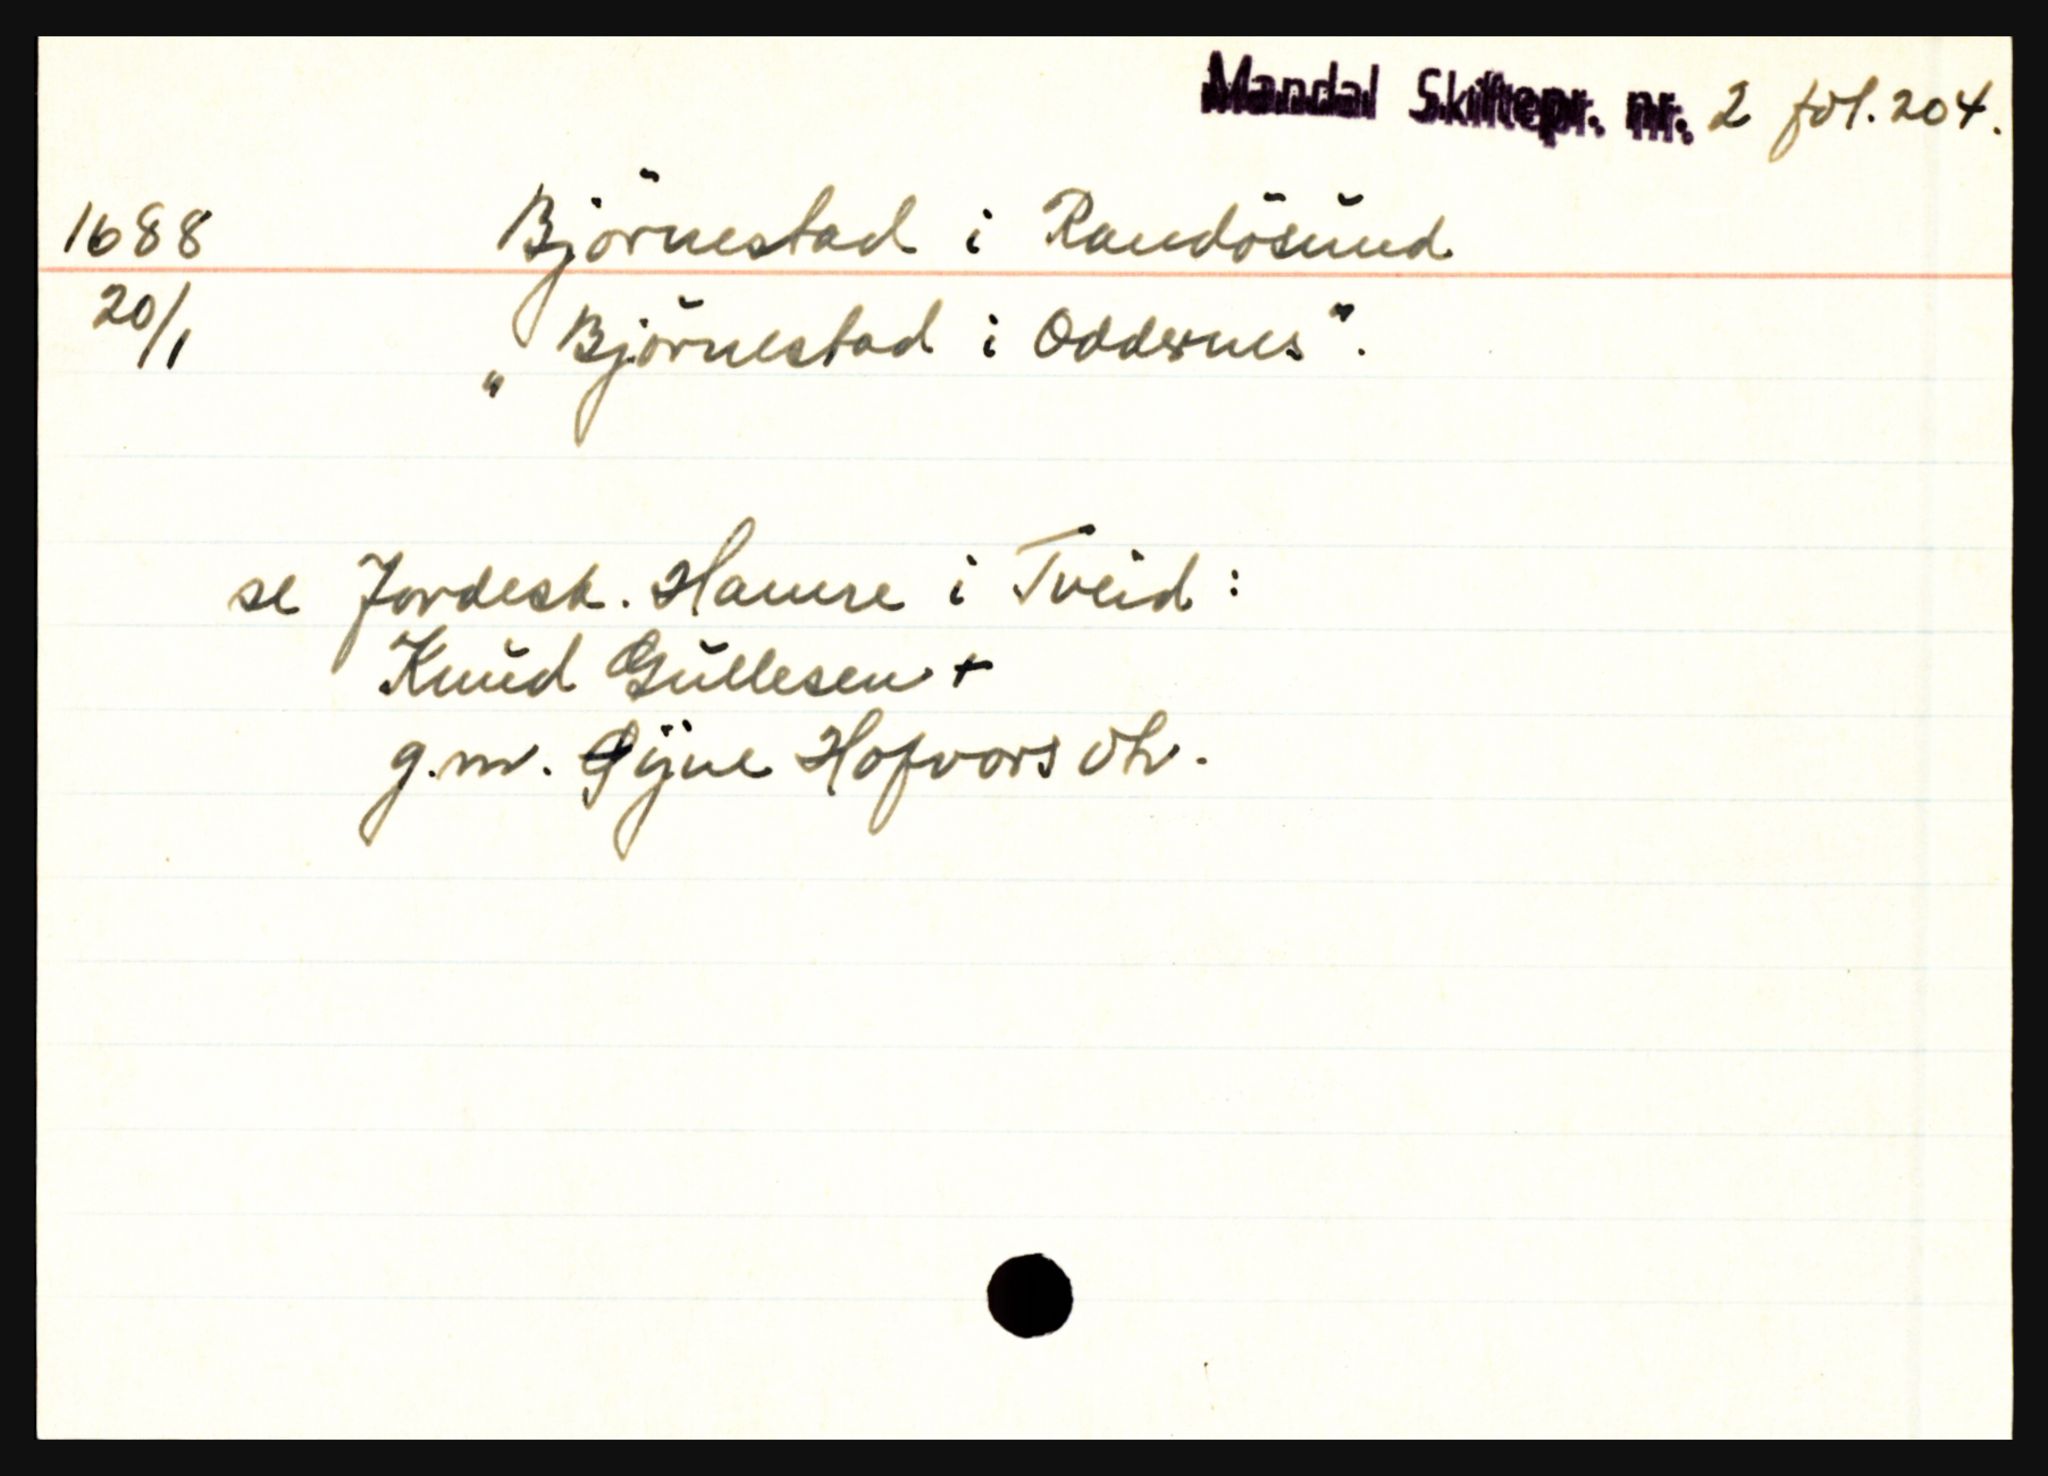 Mandal Skiftepr. nr. 2 fol. 204.
1688 Björnestad i Randösund
20/1 „Björnestad i Oddernes".
se Jordesk. Hamre i Tveid:
Knud Gullesen +
g.m. Hofvorsdtr.